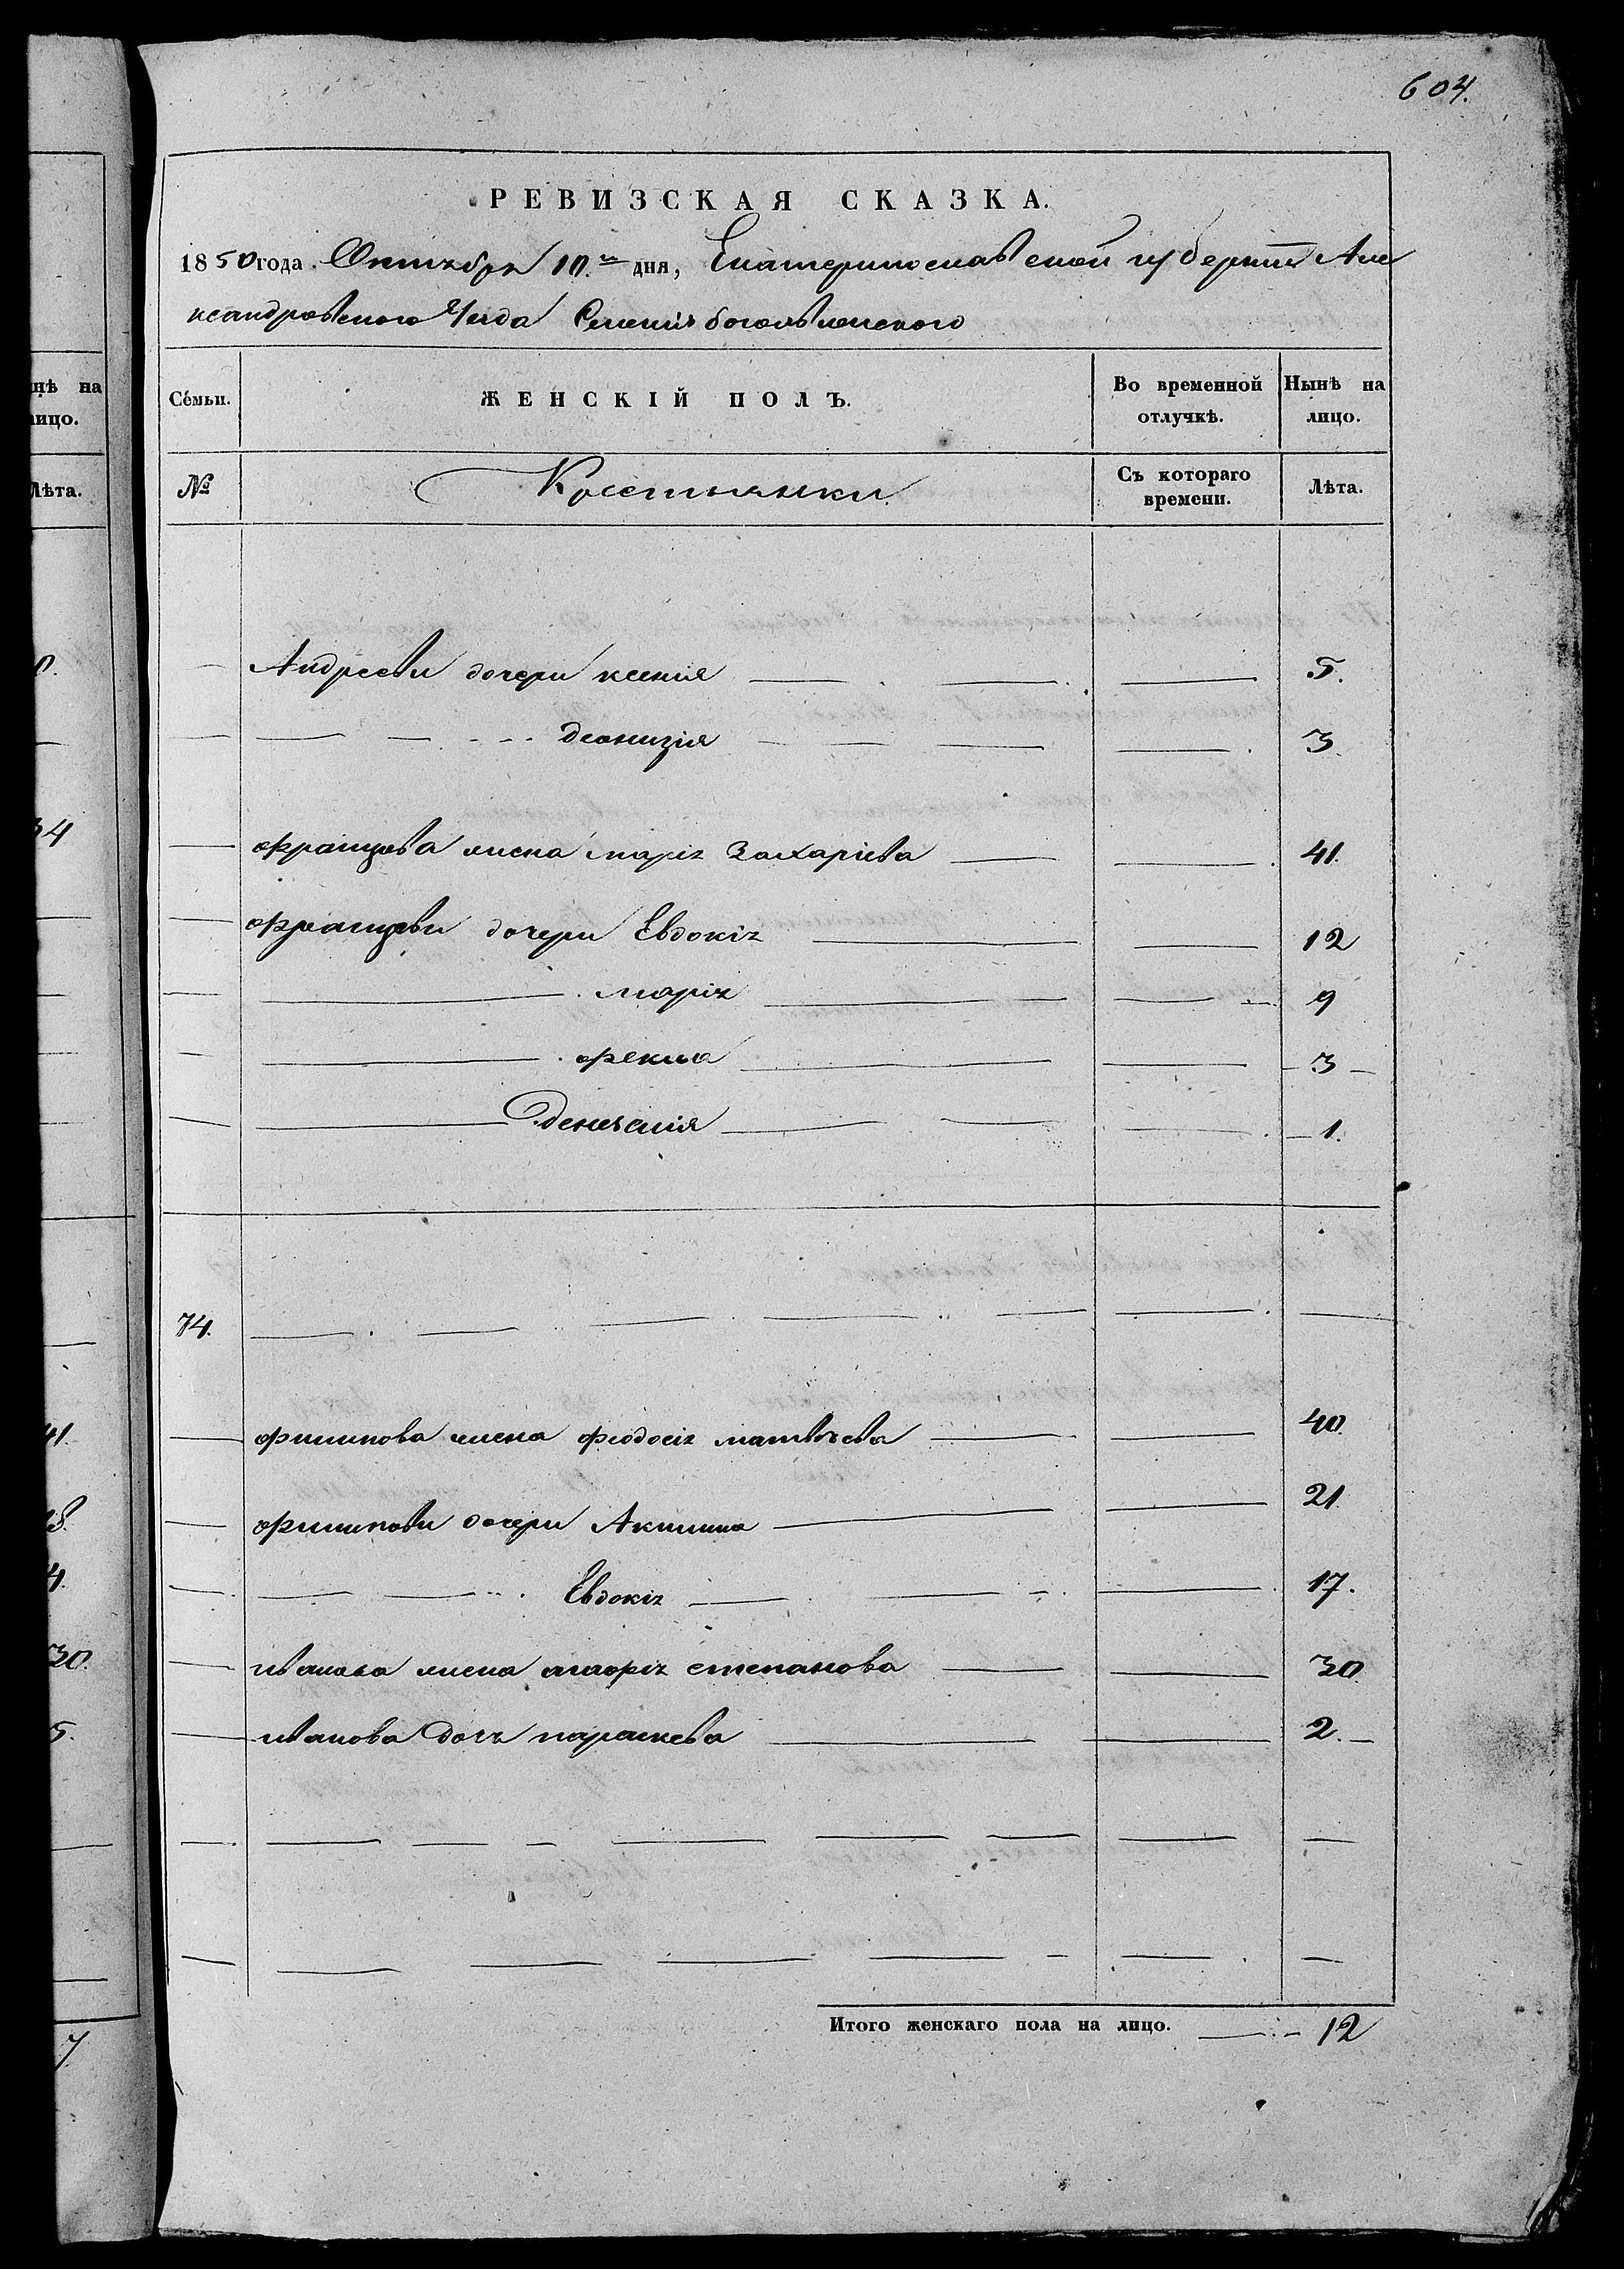 604.
РЕВИЗСКАЯ СКАЗКА.
1850 года Октября 10.го дня, Екатеринославской губернии Але
ксандровского Уезда Селения богоявленского
Семьи. ЖЕНСКІЙ ПОЛЪ. Во временной отлучкѣ. Нынѣ на лицо.
№ Крестьянки Съ котораго времени. Лѣта.
Андреевы дочери ксения 5.
деонизия 3.
францова жена марія Захаріева 41.
францовы дочери Евдокія 12
марія 9
фекла 3
1.
74.
филипова жена феодосія матвѣева 40
филиповы дочери Акилина 21
Евдокія 17.
иванова жена марія степанова 30
иванова дочь параскева 2.
Итого женскаго пола на лицо. 12
нѣ на
лицо.
Лѣта.
0.
34
41.
18.
4.
30.
5.
7